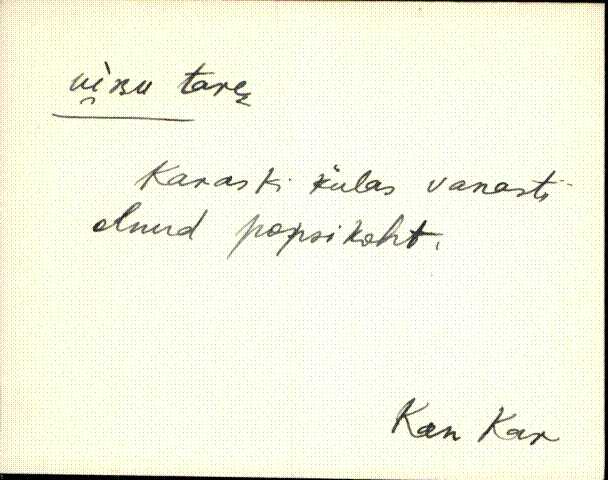 vìʀu tare
Karaski külas vanasti
olnud popsikoht.
Kan Kar